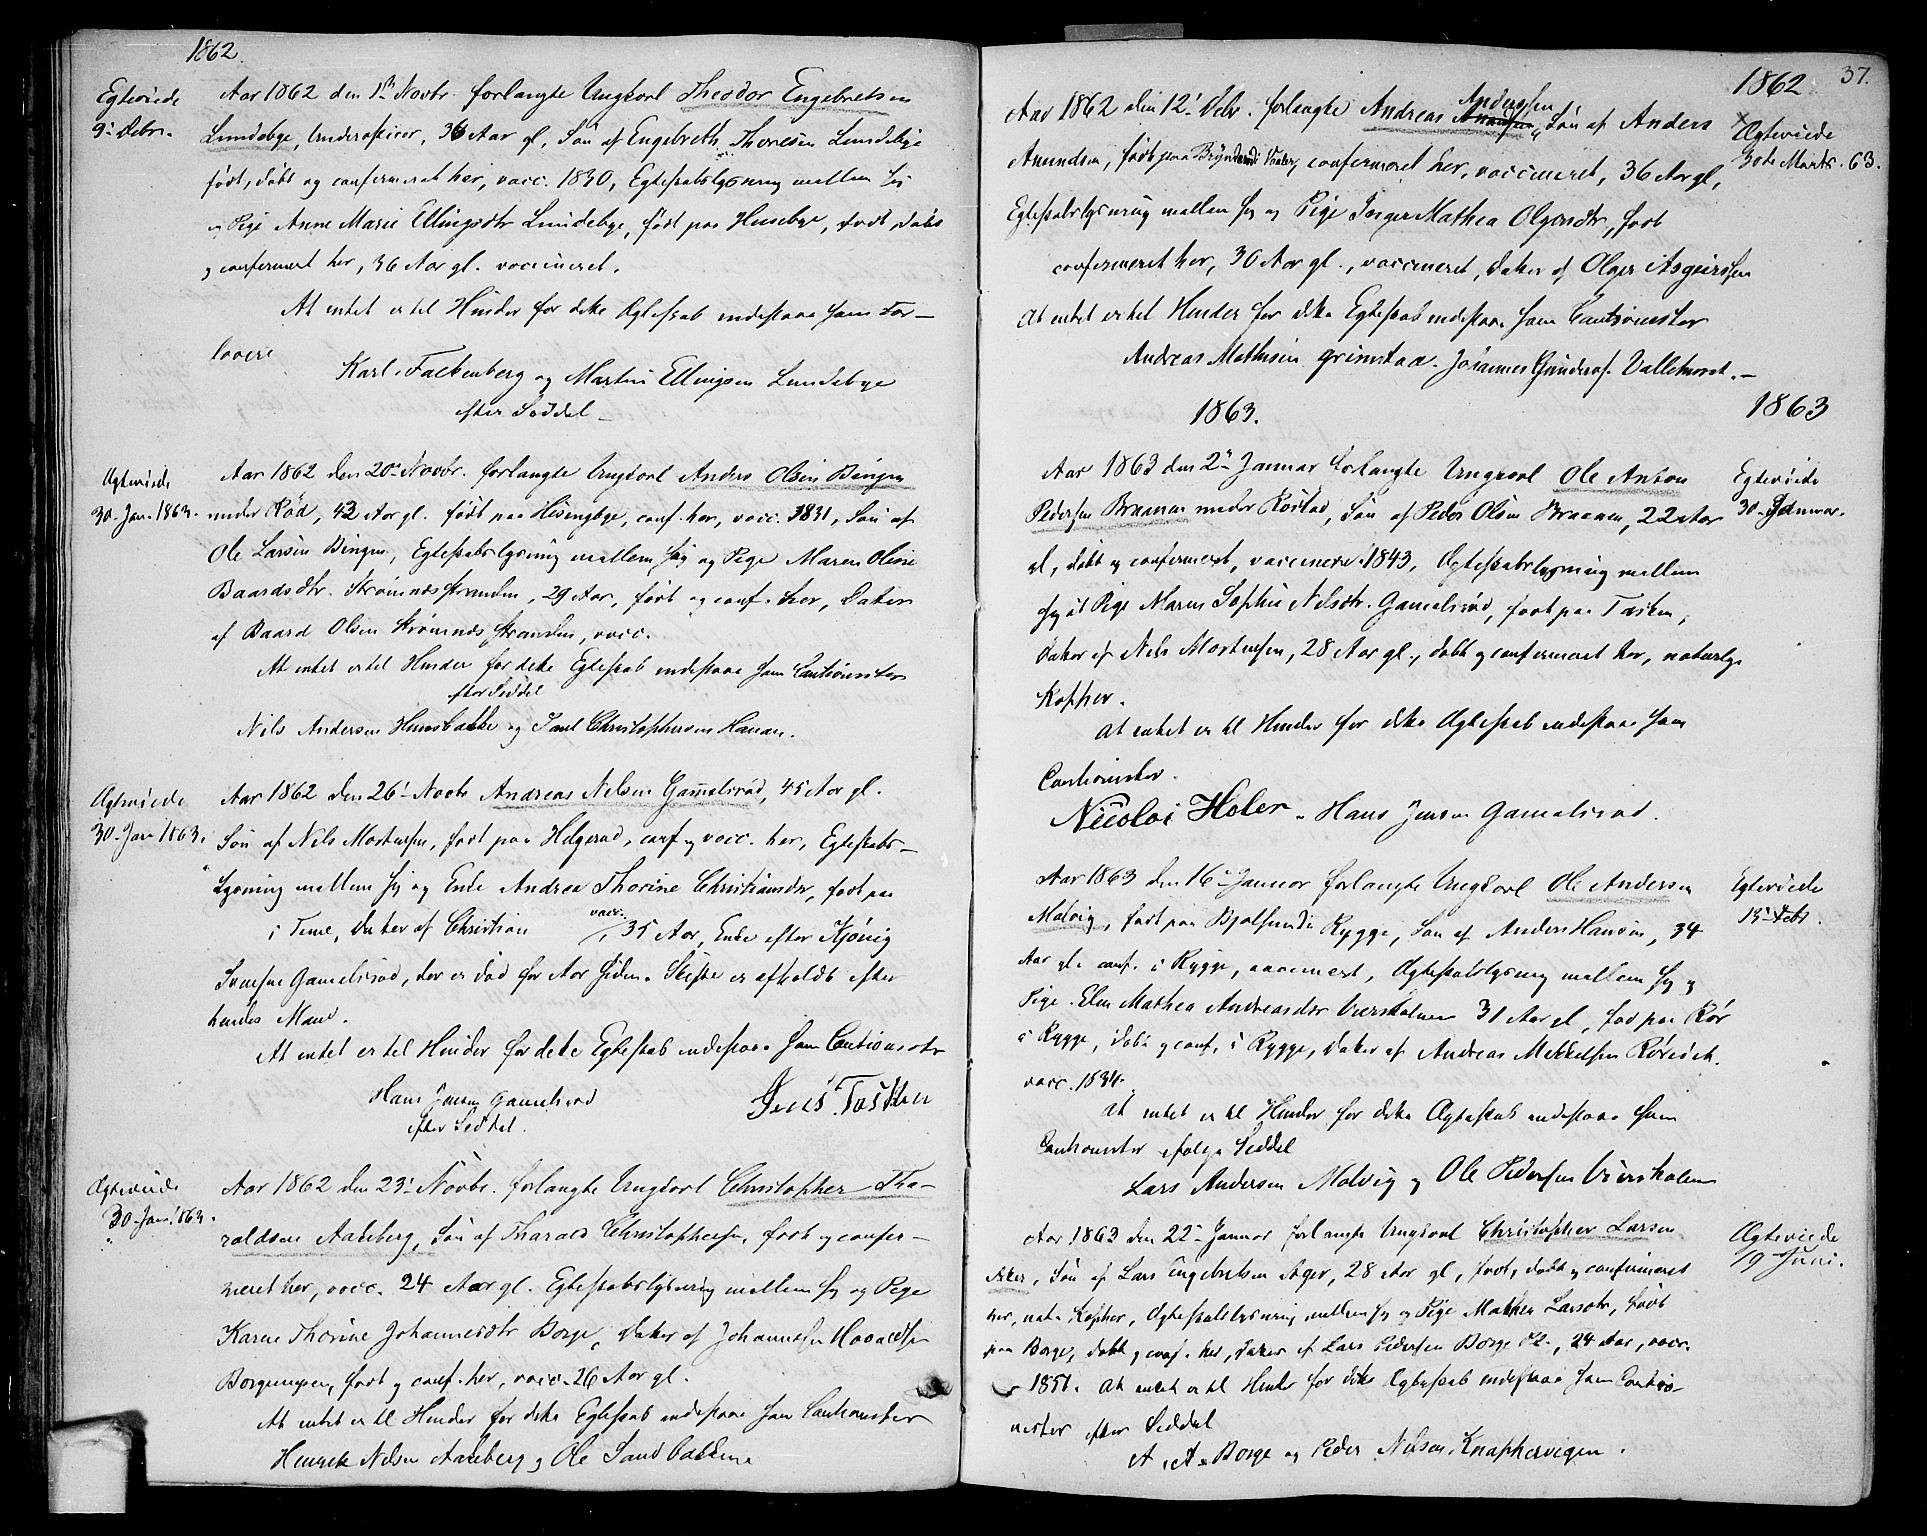 1862.
Egteviede
9de Debr.
Aar 1862 den 1ste Novbr. forlangte Ungkarl Theodor Engebretsen
Lundebye, Underofficer, 36 Aar gl, Søn af Engebreth Thoresen Lundebye
født, døbt og confermeret her, vacc. 1830, Egteskabslysning mellem sig
og Pige Anne Marie Ellingsdtr Lundebye, født paa Husebye, født, døbt
og confermeret her, 36 Aar gl. vaccineret.
At intet er til Hinder for dette Egteskab indestaae som For-
lovere
Karl Falkenberg og Martin Ellingsen Lundebye
efter Seddel
Ægteviede
30. Jan. 1863.
Aar 1862 den 20de Novbr. forlangte Ungkarl Anders Olsen Bingen
under Rød, 42 Aar gl. født paa Hisingbye, conf. her, vacc. 1831, Søn af
Ole Larsen Bingen, Egteskabslysning mellem sig og Pige Maren Oline
Baardsdtr. Strømnesstranden, 29 Aar, født og conf. her, Datter
af Baard Olsen Strømnesstranden, vacc.
At intet er til Hinder for dette Egteskab indestaae som Cautionister
efter Seddel
Nils Andersen Hunsbakke og Paul Christophersen Hanan.
Ægteviede
30. Jan 1863.
Aar 1862 den 26de Novbr Andreas Nelsen Gamelsrød, 45 Aar gl.
Søn af Nils Mortensen, født paa Helgerød, conf og vacc. her, Egteskabs-
lysning mellem sig og Enke Andrea Thorine Christiansdtr, født paa
i Tune, Datter af Christian vacc., 35 Aar, Enke efter
Svensen Gamelsrød, der er død for Aar siden. Skifte er afholdt efter
hendes Mand.
At intet er til Hinder for dette Egteskab indestaae som Cautionister
Hans Jensen Gamelsrød
efter Seddel.
Jens Tasken
Ægteviede
30. Jan. 1863.
Aar 1862 den 23de Novbr. forlangte Ungkarl Christopher Tha-
raldsen Aaleberg, Søn af Tharald Christophersen, født og confer-
meret her, vacc. 24 Aar gl. Egteskabslysning mellem sig og Pige
Karen Thorine Johannesdtr Borge, Datter af Johannes Haraldsen
Borgeengen, født og conf. her, vacc. 26 Aar gl.
At intet er til Hinder for dette Egteskab indestaae som Cautionister
Henrik Nelsen Aaleberg og Ole Sandbakken
1862
37.
Aar 1862 den 12te Debr. forlangte Andreas Anderssen, Søn af Anders
Amundsen, født paa i Vaaler, confermeret her, vaccineret, 36 Aar gl,
Egteskabslysning mellem sig og Pige Inger Mathea Olgersdtr, født
confermeret her, 30 Aar gl., vaccineret, Datter af Olger Asgeirssen
At intet er til Hinder for dette Egteskab indestaae som Cautionister
Andreas Mathisen Grimstad. Johannes Gunders. Vallehvert.
x Ægteviede
30te Marts. 63.
1863.
1863
Aar 1863 den 2den Januar forlangte Ungkarl Ole Anton
Pedersen Braanan under Roistad, Søn af Peder Olsen Braanen, 22 Aar
gl, døbt og confermeret, vaccineret 1843, Ægteskabslysning mellem
sig og Pige Maren Sophie Nelsdtr. Gamelsrød, født paa Tasken,
Datter af Nels Mortensen, 28 Aar gl, døbt og confermeret her, naturlige
Kopper.
At intet er til Hinder for dette Ægteskab indestaae som
Cautionister.
Nicolai Holer. Hans Jensen Gamelsrød.
Egteviede
30. Januar.
Aar 1863 den 16de Januar forlangte Ungkarl Ole Andersen
Molvig, født paa i Rygge, Søn af Anders Hansen, 34
Aar gl. conf. i Rygge, vaccineret, Ægteskabslysning mellem sig og
Pige Elen Mathea Andreasdtr Viersholmen 31 Aar gl, fød paa Rør
i Rygge, døbt og conf. i Rygge, Datter af Andreas Mekkelsen
vacc. 1834.
At intet er til Hinder for dette Ægteskab indestaae som
Cautionister ifølge Seddel
Lars Andersen Molvig og Ole Pedersen Viersholmen
Egteviede
13de Febr.
Aar 1863 den 22de Januar forlangte Ungkarl Christopher Larsen
Aker, Søn af Lars Engebretsen Ager, 28 Aar gl, født, døbt og confirmeret
her, nat. Kopper, Ægteskabslysning mellem sig og Pige Mathea Larsdtr, født
paa Borge, døbt og conf. her, Datter af Lars Pedersen Borge, 24 Aar, vacc.
1851. At intet er til Hinder for dette Egteskab indestaae som Cautio-
nister efter Seddel
A. A. Borge og Peder Nelsen Knappervigen.
Ægteviede
19 Juni.